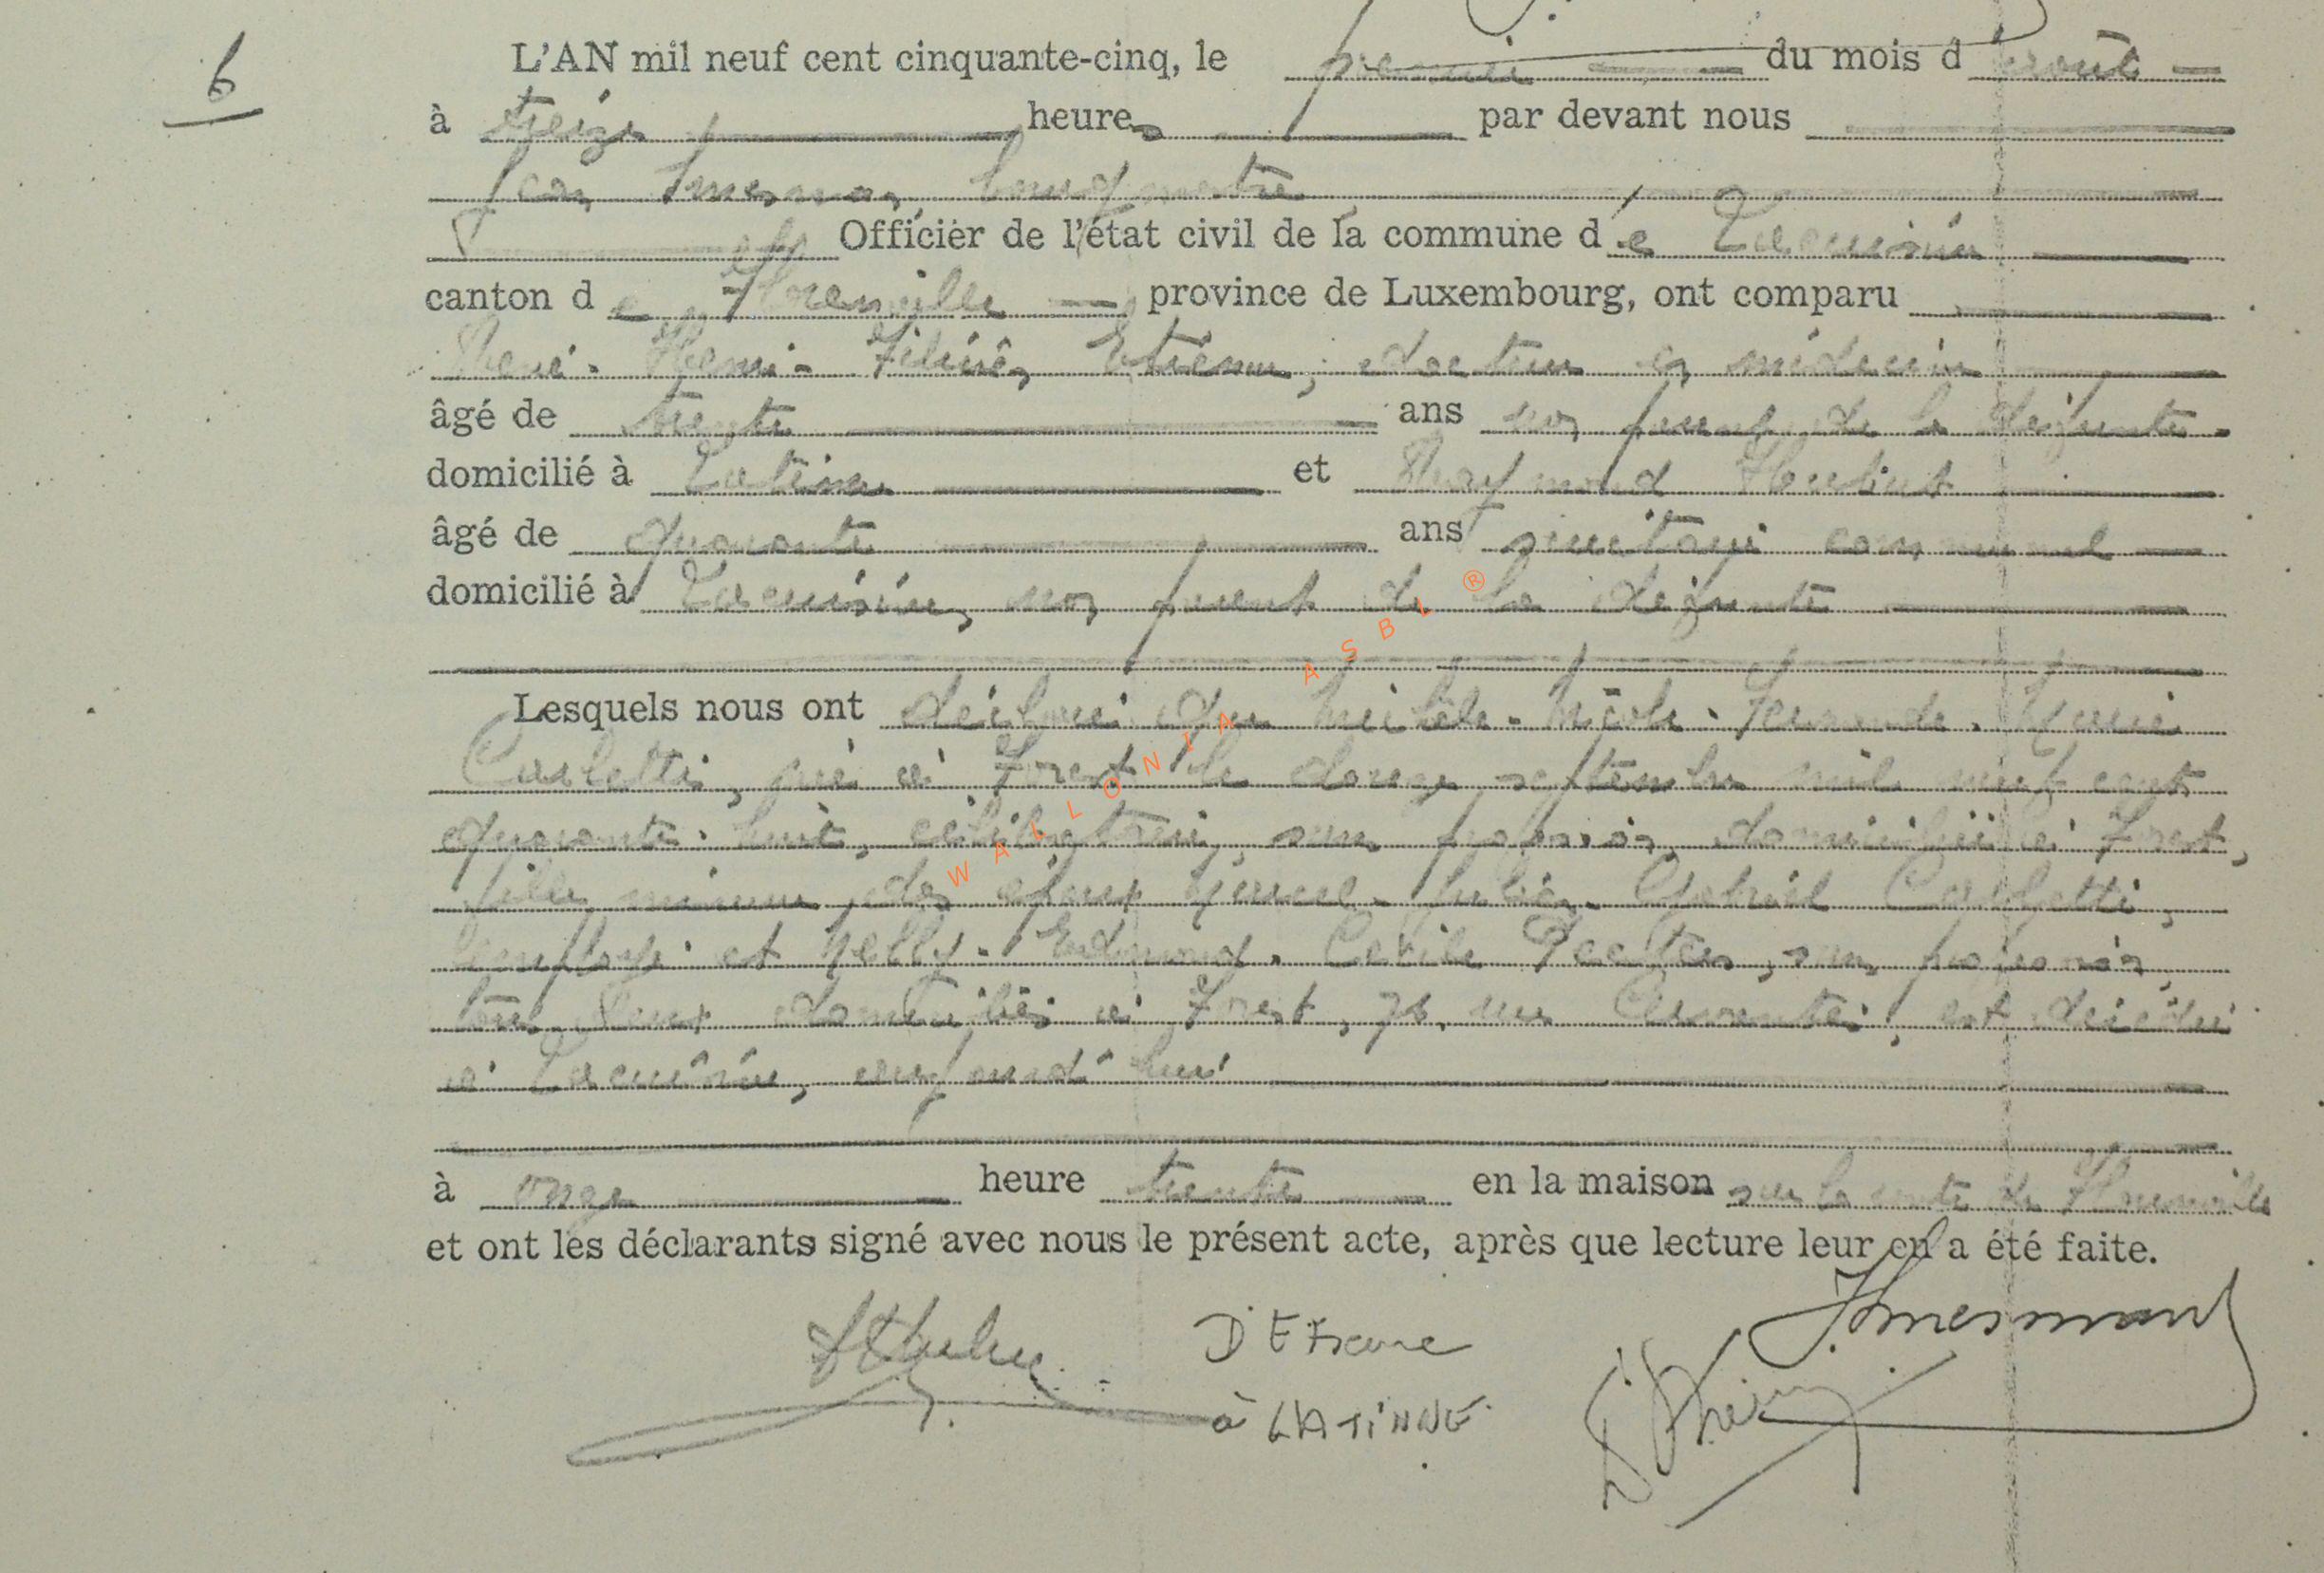 6
L'AN mil neuf cent cinquante-cinq, le premier du mois d'août
à treize heures par devant nous
Jean bourgmestre
Officier de l'état civil de la commune de Lacuisine
canton de Florenville province de Luxembourg, ont comparu
René - Henri - Etienne, docteur en médecine
âgé de trente ans non parent de la défunte
domicilié à Latinne et Raymond
âgé de quarante ans secrétaire communal
domicilié à Lacuisine, non parent de la défunte
Lesquels nous ont déclaré que Michèle - Nicole - Fernande - Marie
Carletti, née à Forest le douze septembre mil neuf cent
quarante-huit, célibataire, sans profession, domiciliée à Forest,
fille mineure des époux Marcel - Julien - Gabriel Carletti,
employé et Nelly - Edmond - Cécile Peeters, sans profession,
tous deux domiciliés à Forest, 78, rue est décédée
à Lacuisine, aujourd'hui
à onze heure trente en la maison sur la route de Florenville
et ont les déclarants signé avec nous le présent acte, après que lecture leur en a été faite.
Dr Etienne
à LATINNE
WALLONIA ASBL ®